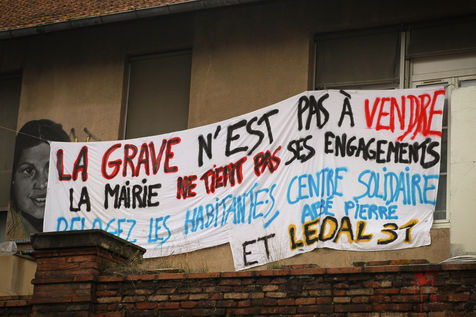 LA GRAVE N'EST PAS À VENDRE
LA MAIRIE NE TIENT PAS SES ENGAGEMENTS
RELOGEZ LES HABITANT·ES· CENTRE SOLIDAIRE
ABBÉ PIERRE
ET LEDAL 31